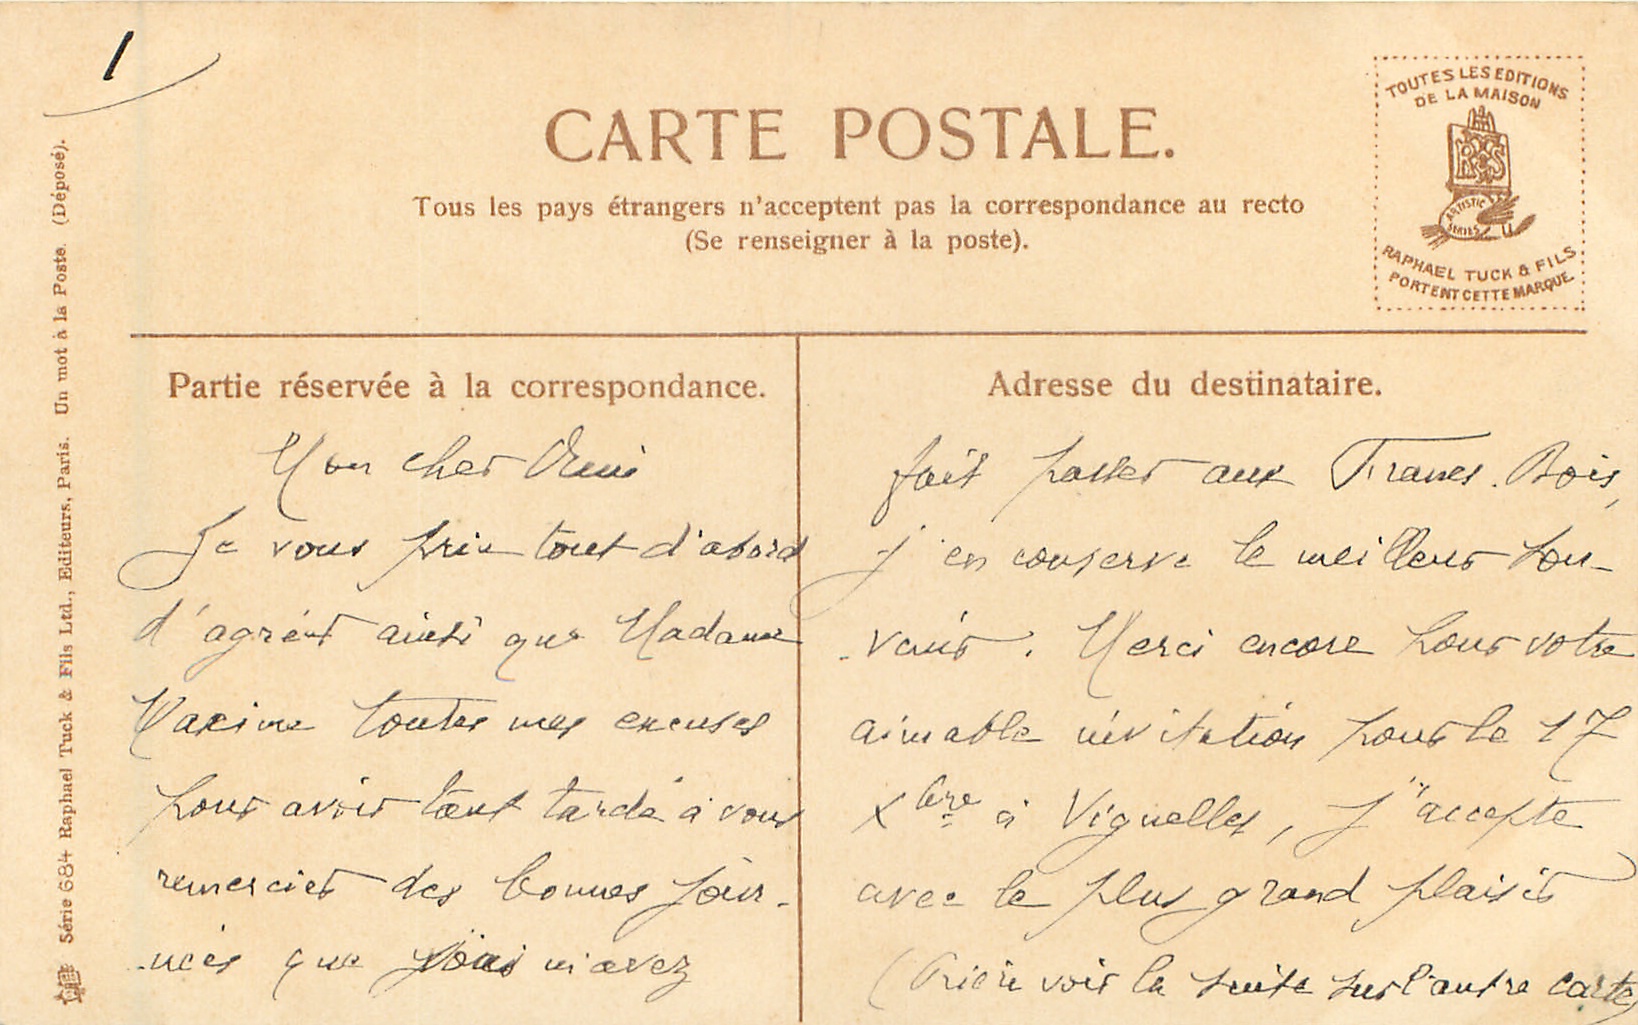 1
CARTE POSTALE.
Tous les pays étrangers n'acceptent pas la correspondance au recto
(Se renseigner à la poste).
TOUTES LES EDITIONS
DE LA MAISON
ARTISTIC
SERIES
RAPHAEL TUCK & FILS
PORTENT CETTE MARQUE.
Série 684 Raphael Tuck & Fils Ltd., Editeurs, Paris. Un mot à la Poste. (Déposé).
Partie réservée à la correspondance.
Mon cher Ami
Je vous prie tout d'abord
d'agréer ainsi que Madame
Maxime toutes mes excuses
pour avoir tant tardé à vous
remercier des bonnes jour-
nées que vous m'avez
Adresse du destinataire.
fait passer aux Francs. Bois,
j'en conserve le meilleur sou-
venir. Merci encore pour votre
aimable invitation pour le 17
Xbre à Vignelles, J'accepte
avec le plus grand plaisir
(Prière voir la suite sur l'autre carte)